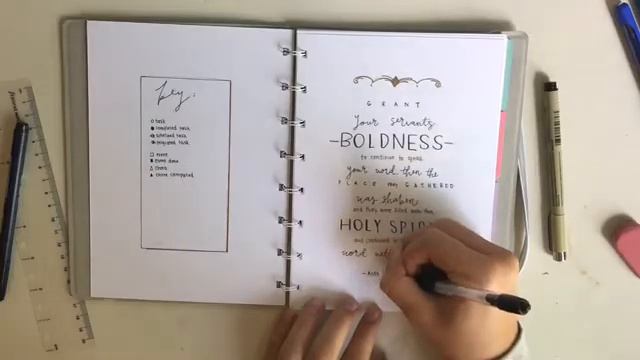 key:
task
completed task
scheduled task
migrated task
event
event done
chore
chore completed
GRANT
Your servants
-BOLDNESS-
to continue to speak
your word then the
PLACE they GATHERED
was shaken
and they were filled with the
HOLY SPIRIT
and continued to
word with
- Acts